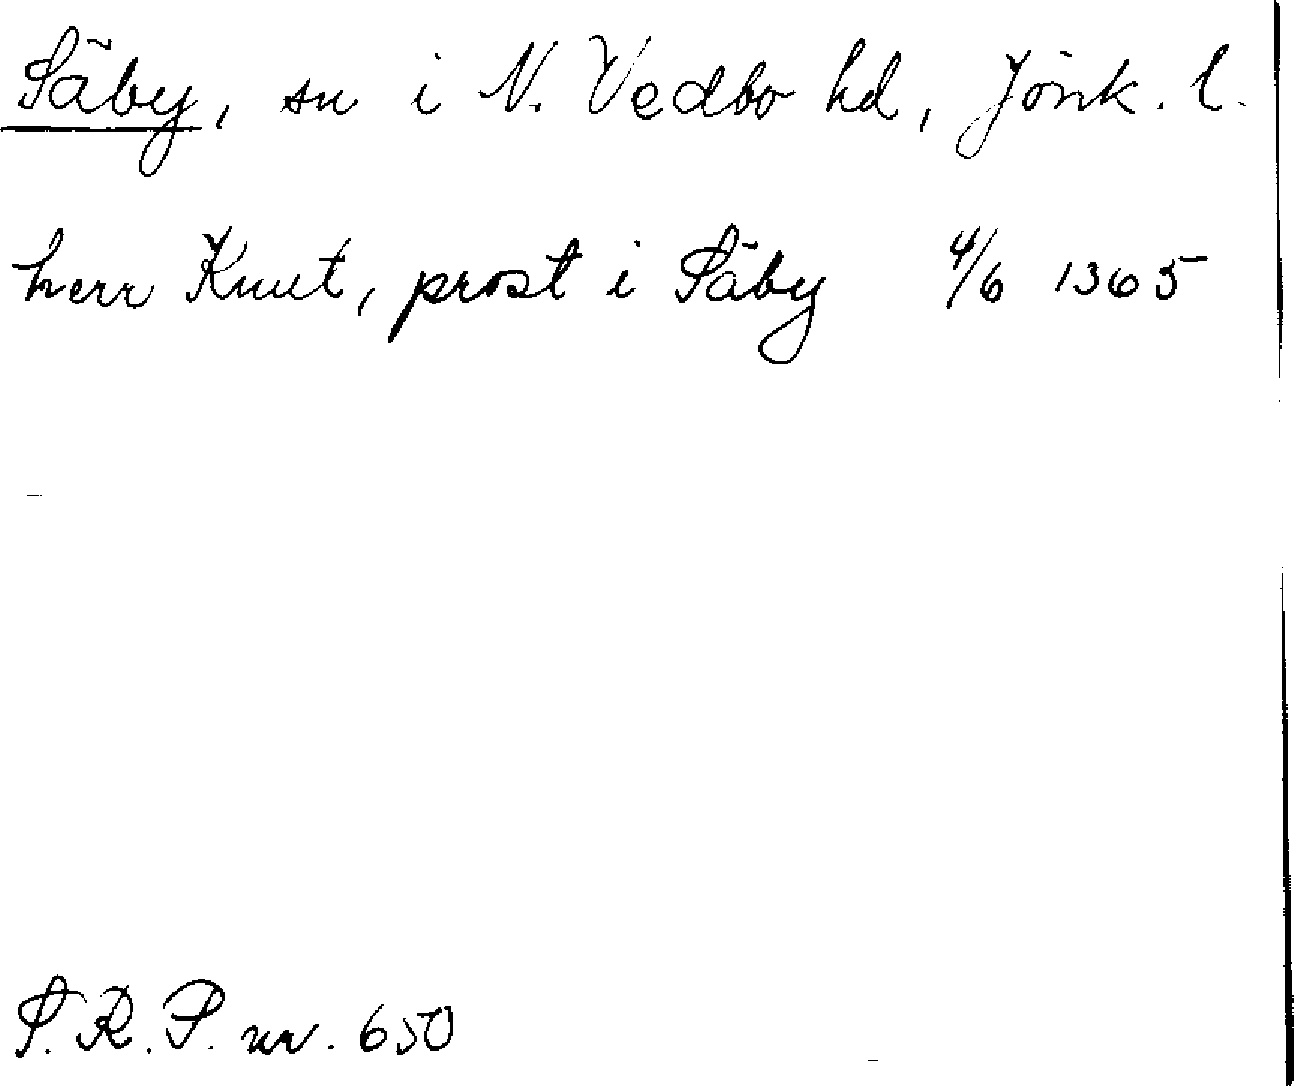 Säby, sn i N. Vedbo hd, Jönk. l.
herr Knut, prost i Säby 4/6 1365
S. R. P. nr. 650